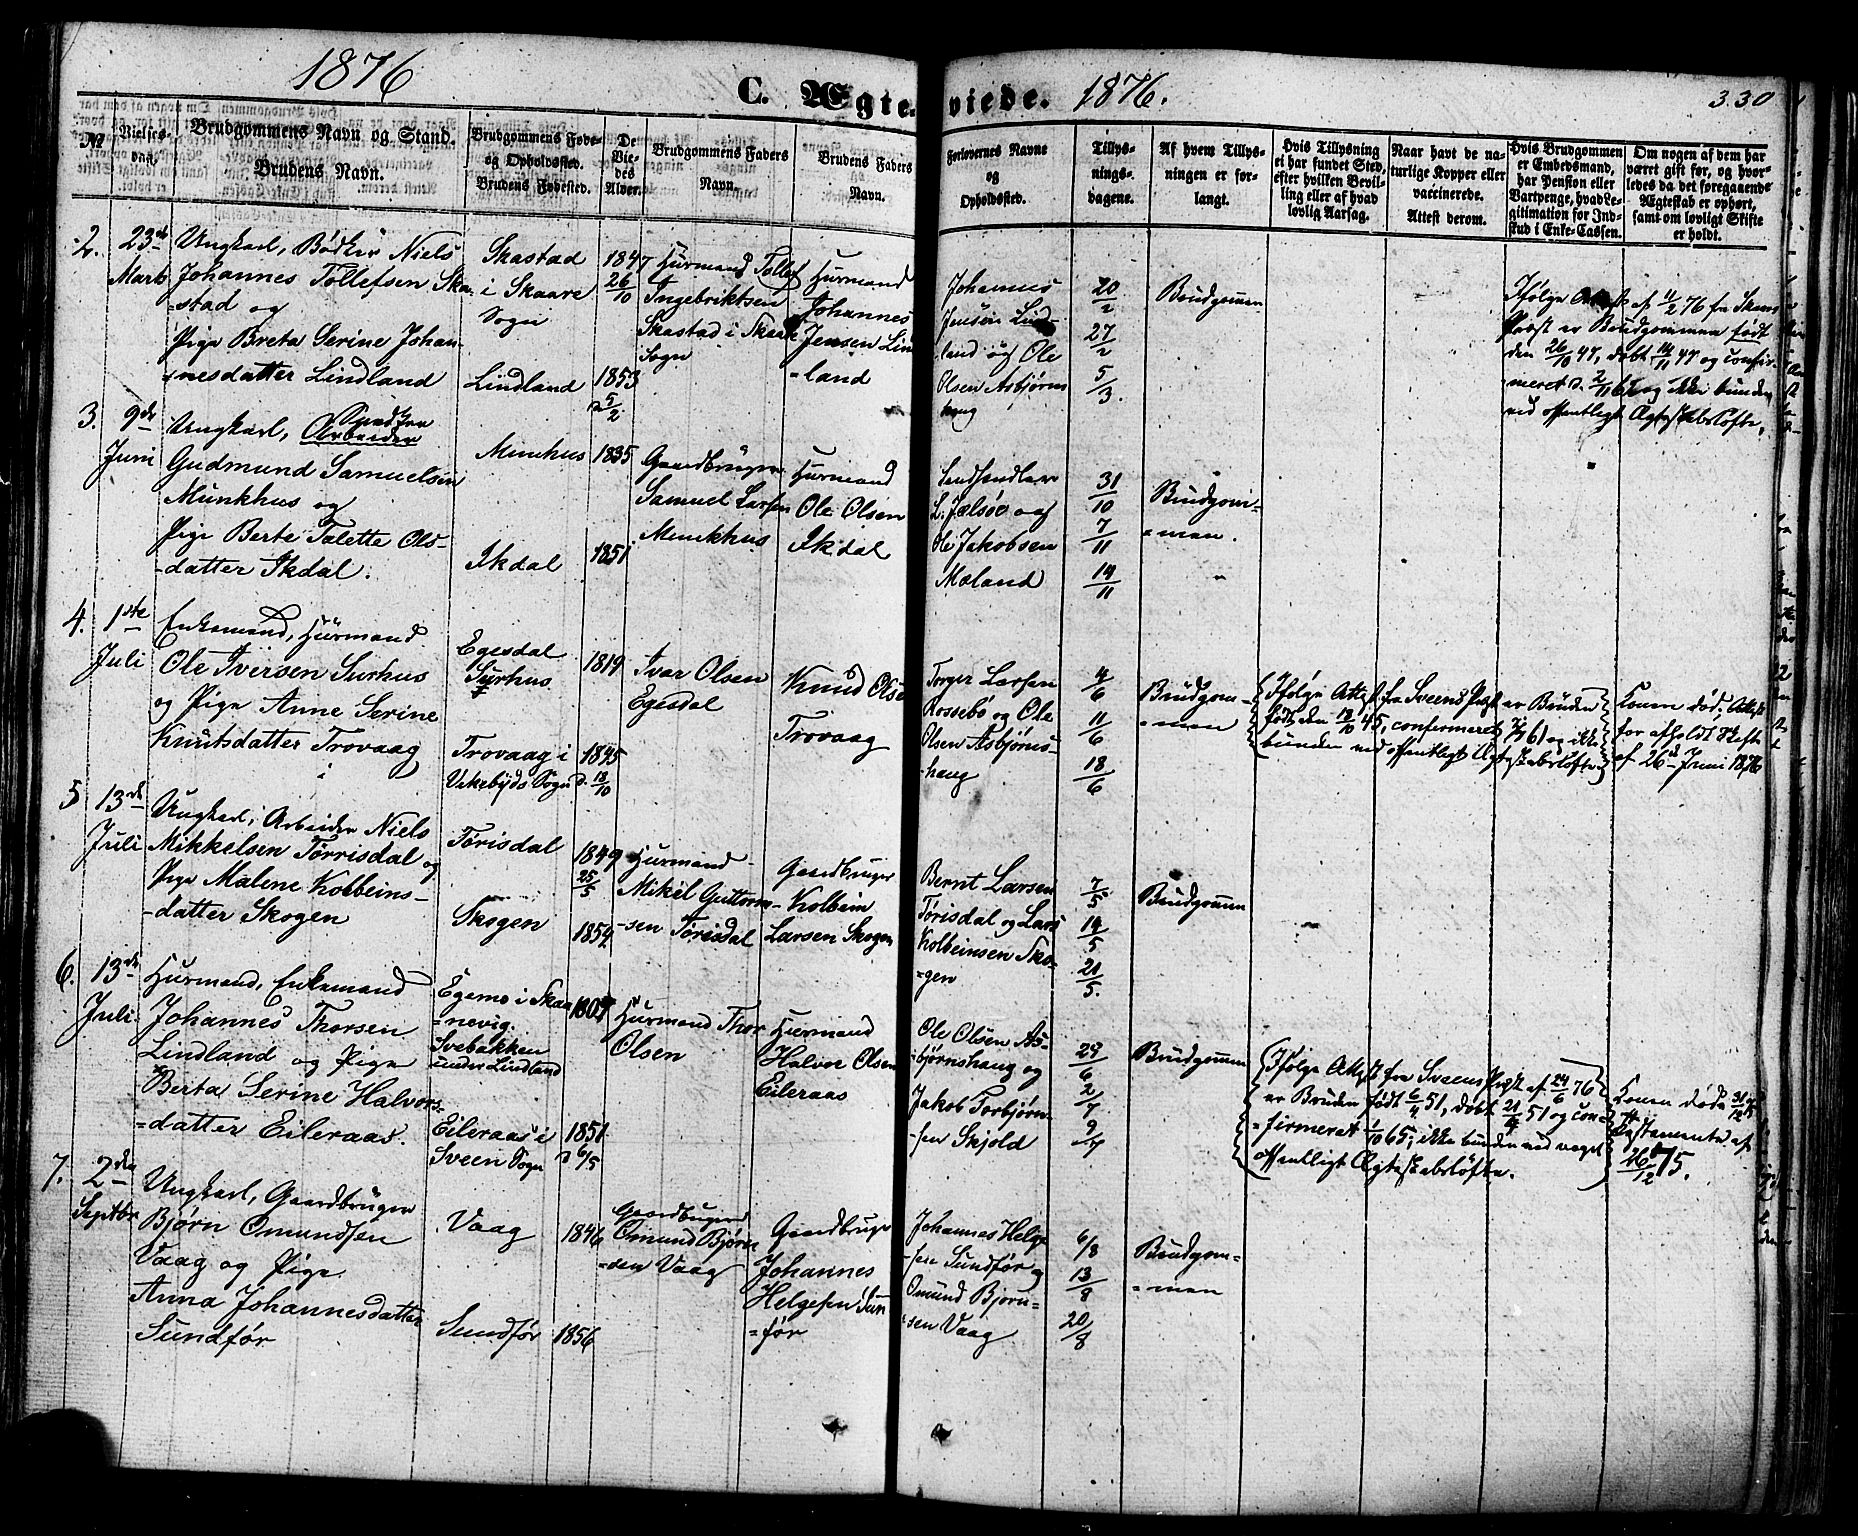 1876
C. Ægteviede. 1876.
330
№
Vielses-
dato.
Brudgommens Navn og Stand.
Brudens Navn.
Brudgommens Føde-
og Opholdssted.
Brudens Fødested.
De
Vie-
des
Alder.
Brudgommens Faders
Navn.
Brudens Faders
Navn.
Forlovernes Navne
og
Opholdssted.
Tillys-
nings-
dagene.
Af hvem Tillys-
ningen er for-
langt.
Hvis Tillysning
ei har fundet Sted,
efter hvilken Bevil-
ling eller af hvad
lovlig Aarsag.
Naar havt de na-
turlige Kopper eller
vaccinerede.
Attest derom.
Hvis Brudgommen
er Embedsmand,
har Pension eller
Vartpenge, hvad Le-
gitimation for Ind-
skud i Enke-Cassen.
Om nogen af dem har
været gift før, og hvor-
ledes da det foregaaende
Ægteskab er ophørt,
samt om lovligt Skifte
er holdt.
2.
23de
Marts
Ungkarl, Bødker Niels
Johannes Tollefsen Ska-
stad og
Pige Breta Serine Johan-
nesdatter Lindland
Skastad
i Skaare
Sogn
Lindland
1847
26/10
1853
5/2
Hurmand Tollef
Ingebriktsen
Skastad i Skaare
Sogn
Hurmand
Johannes
Jensen Lin
=land
Johannes
Jensen Lind-
land og Ole
Olsen Asbjørns
haug
20/2
27/2
5/3.
Brudgommen
Ifølge Attest af 11/2 76 fra Skaare
Præst er Brudgommen født
den 26/10 47, døbt 14/11 47 og confir-
meret d. 2/11 62 og ikke bunden
ved offentligt Ægteskabsløfte.
3.
9de
Juni
Ungkarl, Arbeider
Gudmund Samuelsen
Munkhus og
Pige Berte Talette Ols-
-datter Ikdal.
Munkhus
Ikdal
1835
1851
Gaardbruger
Samuel Larsen
Munkhus
Hurmand
Ole Olsen
Ikdal
Landhandler
L. Jælsø og
Ole Jakobsen
Mæland
31/10
7/11
14/11
Brudgom-
=men.
4.
1ste
Juli
Enkemand, Hurmand
Ole Iversen Surhus
og Pige Anne Serine
Knutsdatter Trovaag
Egesdal
Surhus
Trovaag i
Vikebygds Sogn
1819
1845
d. 18/10
Ivar Olsen
Egesdal
Knud Olse
Trovaag
Torger Larsen
Rossebø og Ole
Olsen Asbjørns-
-haug
4/6
11/6
18/6
Brudgom-
=men
Ifølge Attest fra Sveens Præst er Bruden
født den 18/10 45, confirmeret 61 og ikke
bunden ved offentligt Ægteskabsløfte
Konen død; Attest
for afholdt Skifte
af 26de Juni 1876
5
13de
Juli
Ungkarl, Arbeider Niels
Mikkelsen Tørrisdal og
Pige Malene Kolbeins-
-datter Skogen
Tørisdal
Skogen
1849
25/5
1854
Hurmand
Mikel Guttorm-
-sen Tørisdal
Gaardbruger
Kolbein
Larsen Skogen
Bernt Larsen
Tørisdal og Lars
Kolbeinsen Sko-
=gen
7/5
14/5
21/5.
Brudgommen
6.
13de
Juli
Hurmand, Enkemand
Johannes Thorsen
Lindland og Pige
Berta Serine Halvors-
=datter Eileraas.
Egemo i Skaa
=nevig.
Svebakken
under Lindland
Eileraas i
Sveen Sogn
1807
1851
Hurmand Thor
Olsen
Hurmand
Halvor Olsen
Eileraas
Ole Olsen As-
=bjørnshaug og
Jakob Torbjørn-
-sen Skjold
24/6
2/7
9/7
Brudgommen
Ifølge Attest fra Sveens Præst af 24/6 76
er Bruden født 6/4 51, døbt 21/4 51 og con-
=firmeret 1/10 65; ikke bunden ved noget
offentligt Ægteskabsløfte.
Konen døde 31/12 75
Testamente af
26/12 75.
7.
2den
Septbr
Ungkarl, Gaardbruger
Bjørn Omundsen
Vaag og Pige
Anna Johannesdatter
Sundfør
Vaag
Sundfør
1846
1856
Gaardbruger
Omund Bjørn
=sen Vaag
Gaardbruger
Johannes
Helgesen Sun
=før
Johannes Helge
-sen Sundfør og
Omund Bjørn-
-sen Vaag
6/8
13/8
20/8
Brudgom-
=men